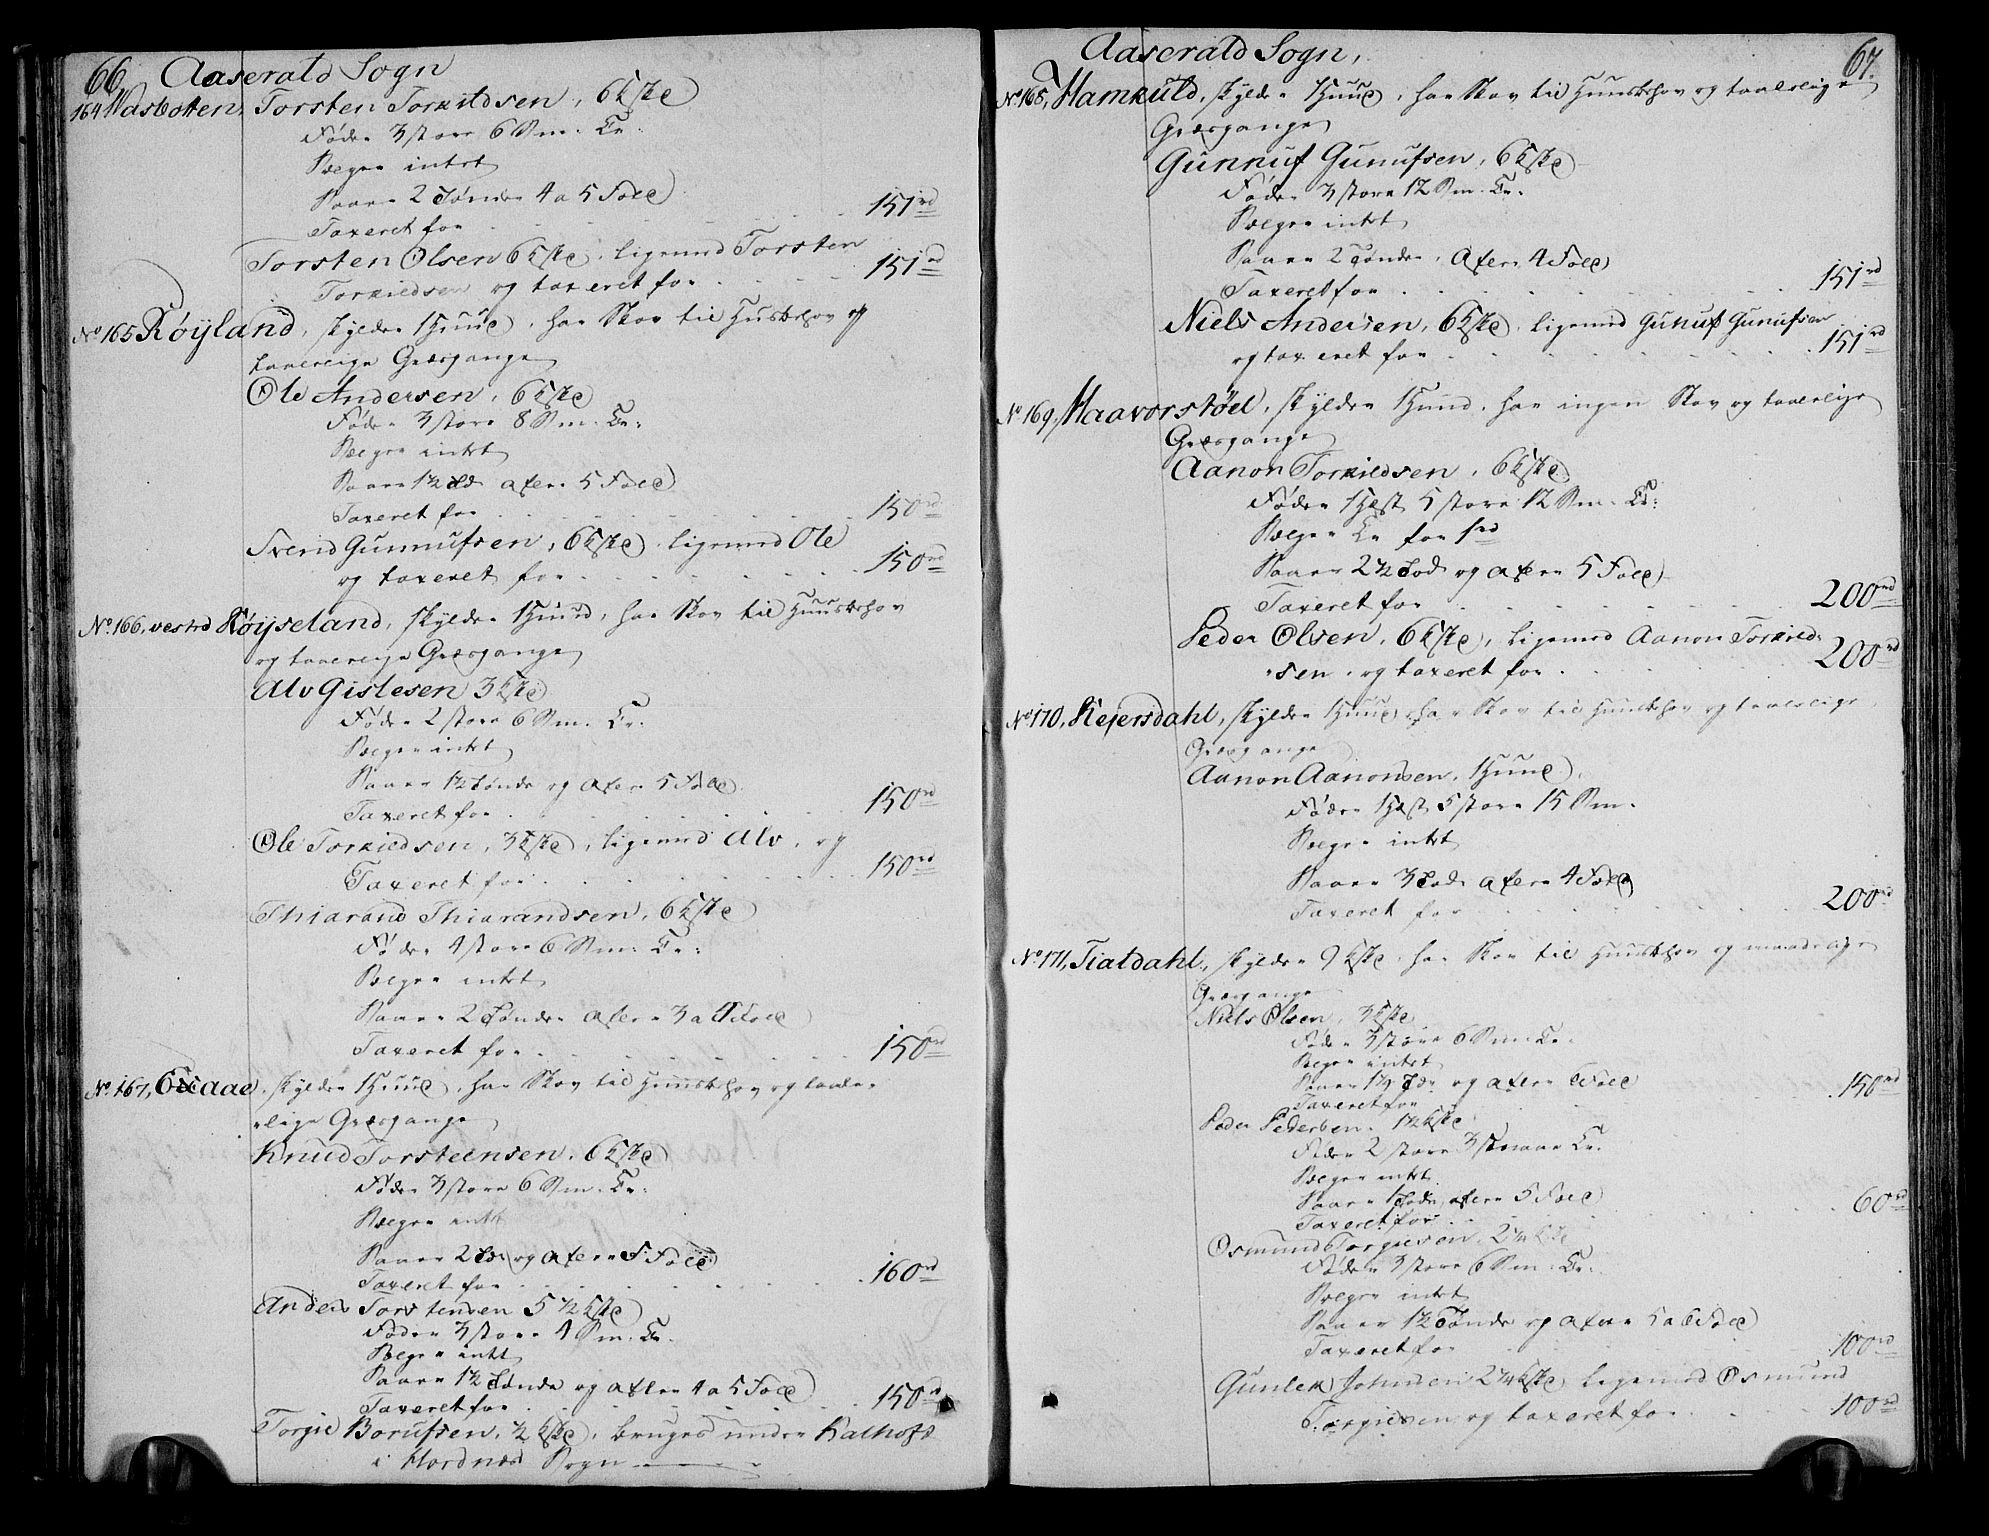 66 Aaserald Sogn
164 Torsten Torkildsen, 6
Føder 3 store 6 Sm. Cr.
Sælger intet
Saaer 2 Tønder 4 a 5 Fold
Taxeret for 151 rd
Torsten Olsen 6 ligemed Torsten
Torkildsen og taxeret for 151 rd
No 165 Røyland, skylder 1 Huud, har Skov til Husbehov og
taalelige Græsgange
Ole Andersen, 6
Føder 3 store 8 Sm. Cr:
Sælger intet
Saaer 1½ Td. avler 5 Fold
Taxeret for 150 rd
Svend Gunnufsen, 6 ligemed Ole
og taxeret for 150 rd
No. 166, vestre Røyseland, skylder 1 Huud, har Skov til Huusbehov
og taalelige Græsgange
Alv Gislesen 3
Føder 2 store 6 Sm. Cr.
Sælger intet
Saaer 1½ Tønde og avler 5 Fold
Taxeret for 150 rd
Ole Torkildsen, 3 ligemed Alv, og
Taxeret for 150 rd
Thiarand Thiarandsen, 6
Føder 4 store 6 Sm: Cr:
Sælger intet
Saaer 2 Tønder avler 3 a 4 Fold
Taxeret for 150 rd
No. 167, skylder 1 Huud, har Skov til Huusbehov og taale-
-lige Græsgange
Knud Torsteensen, 6
Føder 3 store 6 Sm. Cr:
Sælger intet
Saaer 2 Td. og avler 5 Fold
Taxeret for 160 rd
Anders Torstensen 5½
Føder 3 store 4 Sm. Cr.
Sælger intet
Saaer 1½ Tønde og avler 4 a 5 Fold
Taxeret for 150 rd
Torgie Borufsen, ½ bruges under
i Sogn
Aaserald Sogn, 67.
No 168, Hamkuld, skylder 1 Huud, har Skov til Huusbehov og taalelige
Græsgange
Gunnuf Gunufsen, 6
Føder 3 store 12 Sm. Cr.
Sælger intet
Saaer 2 Tønder, avler 4 Fold
Taxeret for 151 rd
Niels Andersen, 6 ligemed Gunuf Gunufsen
og taxeret for 151 rd
No 169, Haaverstøel, skylder 1 Huud, har ingen Skov og taalelige
Græsgange
Aanon Torkildsen, 6
Føder 1 Hest 5 store 12 Sm. Cr:
Sælger Cr for 1 rd
Saaer 2½ Td. og avler 5 Fold
Taxeret for 200 rd
Peder Olsen, 6 ligemed Aanon Torkild-
-sen og taxeret for 200 rd
No 170, Kejersdahl, skylder 1 Huud, har Skov til Huusbehov og taalelige
Græsgange
Aanon Aanonsen, 1 Huud,
Føder 1 Hest 5 store 15 Sm.
Sælger intet
Saaer 3 Td. avler 4 Fold
Taxeret for 200 rd
No 171, Tialdahl, skylder 9 har Skov til Huusbehov og maadelige
Græsgange
Niels Olsen, 3
Føder 3 store 6 Sm. Cr.
Sælger intet
Saaer 1½ Td. og avler 6 Fold
Taxeret for 150 rd
Peder Pedersen, 1½
Føder 2 store 3 smaae Cr.
Sælger intet
Saaer 1 Tønde avler 5 Fold
Taxeret for 60 rd
Osmund Torgiesen, 2¼
Føder 3 store 6 Sm. Cr.
Sælger intet
Saaer 1½ Tønde og avler 5 a 6 Fold
Taxeret for 100 rd
Gunlek 2¼ ligemed Osmund
Torgiesen og taxeret for 100 rd